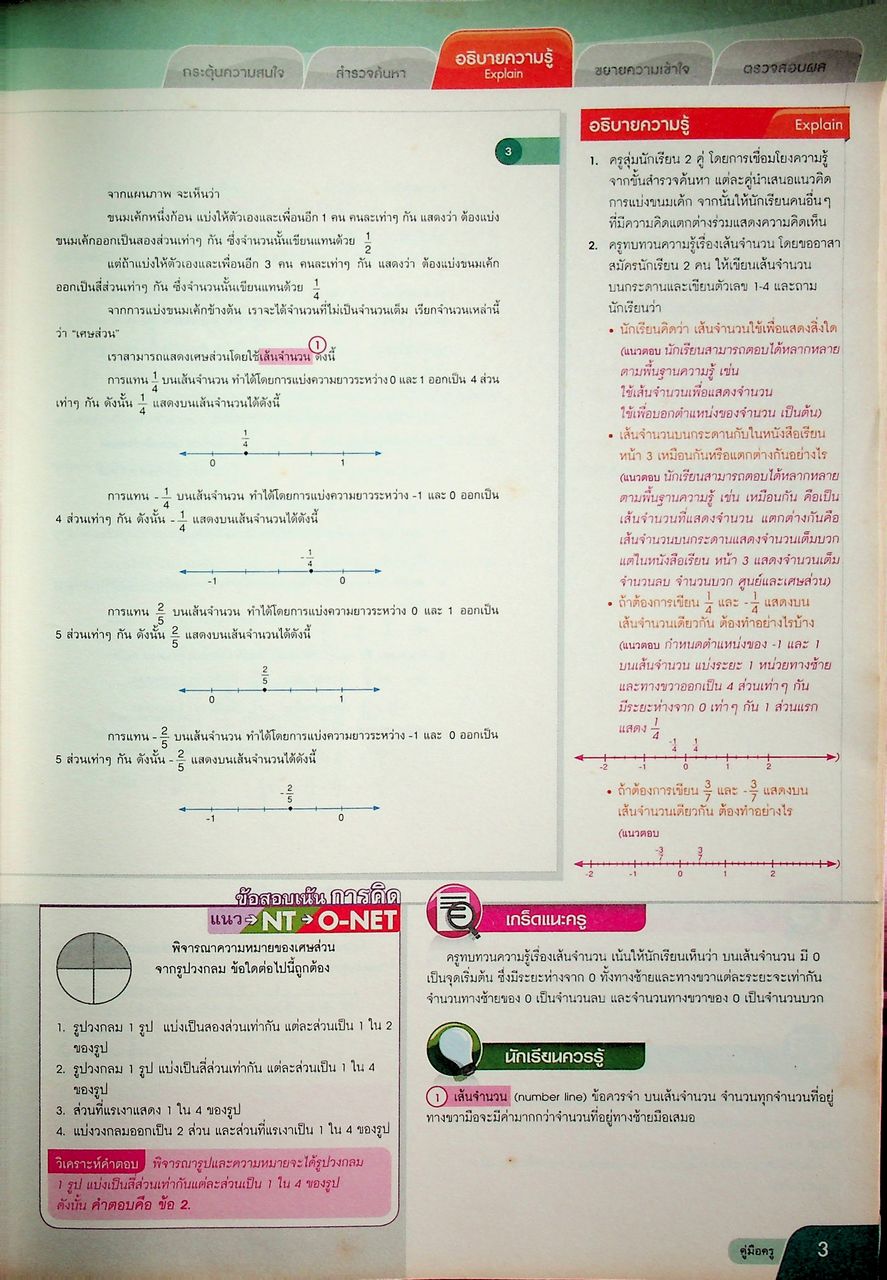 กระตุ้นความสนใจ
สำรวจค้นหา
อธิบายความรู้
Explain
ขยายความเข้าใจ
ตรวจสอบผล
3
จากแผนภาพ จะเห็นว่า
ขนมเค้กหนึ่งก้อน แบ่งให้ตัวเองและเพื่อนอีก 1 คน คนละเท่าๆ กัน แสดงว่า ต้องแบ่ง
ขนมเค้กออกเป็นสองส่วนเท่าๆ กัน ซึ่งจำนวนนั้นเขียนแทนด้วย 1/2
แต่ถ้าแบ่งให้ตัวเองและเพื่อนอีก 3 คน คนละเท่าๆ กัน แสดงว่า ต้องแบ่งขนมเค้ก
ออกเป็นสี่ส่วนเท่าๆ กัน ซึ่งจำนวนนั้นเขียนแทนด้วย 1/4
จากการแบ่งขนมเค้กข้างต้น เราจะได้จำนวนที่ไม่เป็นจำนวนเต็ม เรียกจำนวนเหล่านี้
ว่า "เศษส่วน"
เราสามารถแสดงเศษส่วนโดยใช้เส้นจำนวน 1 ดังนี้
การแทน 1/4 บนเส้นจำนวน ทำได้โดยการแบ่งความยาวระหว่าง 0 และ 1 ออกเป็น 4 ส่วน
เท่าๆ กัน ดังนั้น 1/4 แสดงบนเส้นจำนวนได้ดังนี้
1/4
0 1
การแทน -1/4 บนเส้นจำนวน ทำได้โดยการแบ่งความยาวระหว่าง -1 และ 0 ออกเป็น
4 ส่วนเท่าๆ กัน ดังนั้น -1/4 แสดงบนเส้นจำนวนได้ดังนี้
-1/4
-1 0
การแทน 2/5 บนเส้นจำนวน ทำได้โดยการแบ่งความยาวระหว่าง 0 และ 1 ออกเป็น
5 ส่วนเท่าๆ กัน ดังนั้น 2/5 แสดงบนเส้นจำนวนได้ดังนี้
2/5
0 1
การแทน -2/5 บนเส้นจำนวน ทำได้โดยการแบ่งความยาวระหว่าง -1 และ 0 ออกเป็น
5 ส่วนเท่าๆ กัน ดังนั้น -2/5 แสดงบนเส้นจำนวนได้ดังนี้
-2/5
-1 0
อธิบายความรู้ Explain
1. ครูสุ่มนักเรียน 2 คู่ โดยการเชื่อมโยงความรู้
จากขั้นสำรวจค้นหา แต่ละคู่นำเสนอแนวคิด
การแบ่งขนมเค้ก จากนั้นให้นักเรียนคนอื่นๆ
ที่มีความคิดแตกต่างร่วมแสดงความคิดเห็น
2. ครูทบทวนความรู้เรื่องเส้นจำนวน โดยขออาสา
สมัครนักเรียน 2 คน ให้เขียนเส้นจำนวน
บนกระดานและเขียนตัวเลข 1-4 และถาม
นักเรียนว่า
• นักเรียนคิดว่า เส้นจำนวนใช้เพื่อแสดงสิ่งใด
(แนวตอบ นักเรียนสามารถตอบได้หลากหลาย
ตามพื้นฐานความรู้ เช่น
ใช้เส้นจำนวนเพื่อแสดงจำนวน
ใช้เพื่อบอกตำแหน่งของจำนวน เป็นต้น)
• เส้นจำนวนบนกระดานกับในหนังสือเรียน
หน้า 3 เหมือนกันหรือแตกต่างกันอย่างไร
(แนวตอบ นักเรียนสามารถตอบได้หลากหลาย
ตามพื้นฐานความรู้ เช่น เหมือนกัน คือเป็น
เส้นจำนวนที่แสดงจำนวน แตกต่างกันคือ
เส้นจำนวนบนกระดานแสดงจำนวนเต็มบวก
แต่ในหนังสือเรียน หน้า 3 แสดงจำนวนเต็ม
จำนวนลบ จำนวนบวก ศูนย์และเศษส่วน)
• ถ้าต้องการเขียน 1/4 และ -1/4 แสดงบน
เส้นจำนวนเดียวกัน ต้องทำอย่างไรบ้าง
(แนวตอบ กำหนดตำแหน่งของ -1 และ 1
บนเส้นจำนวน แบ่งระยะ 1 หน่วยทางซ้าย
และทางขวาออกเป็น 4 ส่วนเท่าๆ กัน
มีระยะห่างจาก 0 เท่าๆ กัน 1 ส่วนแรก
แสดง 1/4
-1/4 1/4
-2 -1 0 1 2 )
• ถ้าต้องการเขียน 3/7 และ -3/7 แสดงบน
เส้นจำนวนเดียวกัน ต้องทำอย่างไร
(แนวตอบ
-3/7 3/7
-2 -1 0 1 2 )
ข้อสอบเน้น การคิด
แนว NT O-NET
พิจารณาความหมายของเศษส่วน
จากรูปวงกลม ข้อใดต่อไปนี้ถูกต้อง
1. รูปวงกลม 1 รูป แบ่งเป็นสองส่วนเท่ากัน แต่ละส่วนเป็น 1 ใน 2
ของรูป
2. รูปวงกลม 1 รูป แบ่งเป็นสี่ส่วนเท่ากัน แต่ละส่วนเป็น 1 ใน 4
ของรูป
3. ส่วนที่แรเงาแสดง 1 ใน 4 ของรูป
4. แบ่งวงกลมออกเป็น 2 ส่วน และส่วนที่แรเงาเป็น 1 ใน 4 ของรูป
วิเคราะห์คำตอบ พิจารณารูปและความหมายจะได้รูปวงกลม
1 รูป แบ่งเป็นสี่ส่วนเท่ากันแต่ละส่วนเป็น 1 ใน 4 ของรูป
ดังนั้น คำตอบคือ ข้อ 2.
เกร็ดแนะครู
ครูทบทวนความรู้เรื่องเส้นจำนวน เน้นให้นักเรียนเห็นว่า บนเส้นจำนวน มี 0
เป็นจุดเริ่มต้น ซึ่งมีระยะห่างจาก 0 ทั้งทางซ้ายและทางขวาแต่ละระยะจะเท่ากัน
จำนวนทางซ้ายของ 0 เป็นจำนวนลบ และจำนวนทางขวาของ 0 เป็นจำนวนบวก
นักเรียนควรรู้
1 เส้นจำนวน (number line) ข้อควรจำ บนเส้นจำนวน จำนวนทุกจำนวนที่อยู่
ทางขวามือจะมีค่ามากกว่าจำนวนที่อยู่ทางซ้ายมือเสมอ
คู่มือครู 3